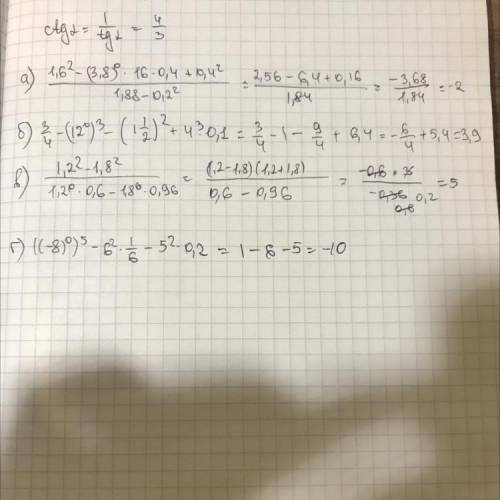 ctg α = 1/tg α = 4/3
а) (1,6² - (3,8)⁰ · 16 · 0,4 + 0,4²)/(1,88 - 0,2²) = (2,56 - 6,4 + 0,16)/1,84 = -3,68/1,84 = -2
б) 3/4 - (12⁰)³ - (1 1/2)² + 4³ · 0,1 = 3/4 - 1 - 9/4 + 6,4 = -6/4 + 5,4 = 3,9
в) (1,2² - 1,8²)/(1,2⁰ · 0,6 - 18⁰ · 0,96) = (1,2 - 1,8)(1,2 + 1,8)/(0,6 - 0,96) = = 5
г) ((-8)⁰)⁵ - 6² · 1/6 - 5² · 0,2 = 1 - 6 - 5 = -10